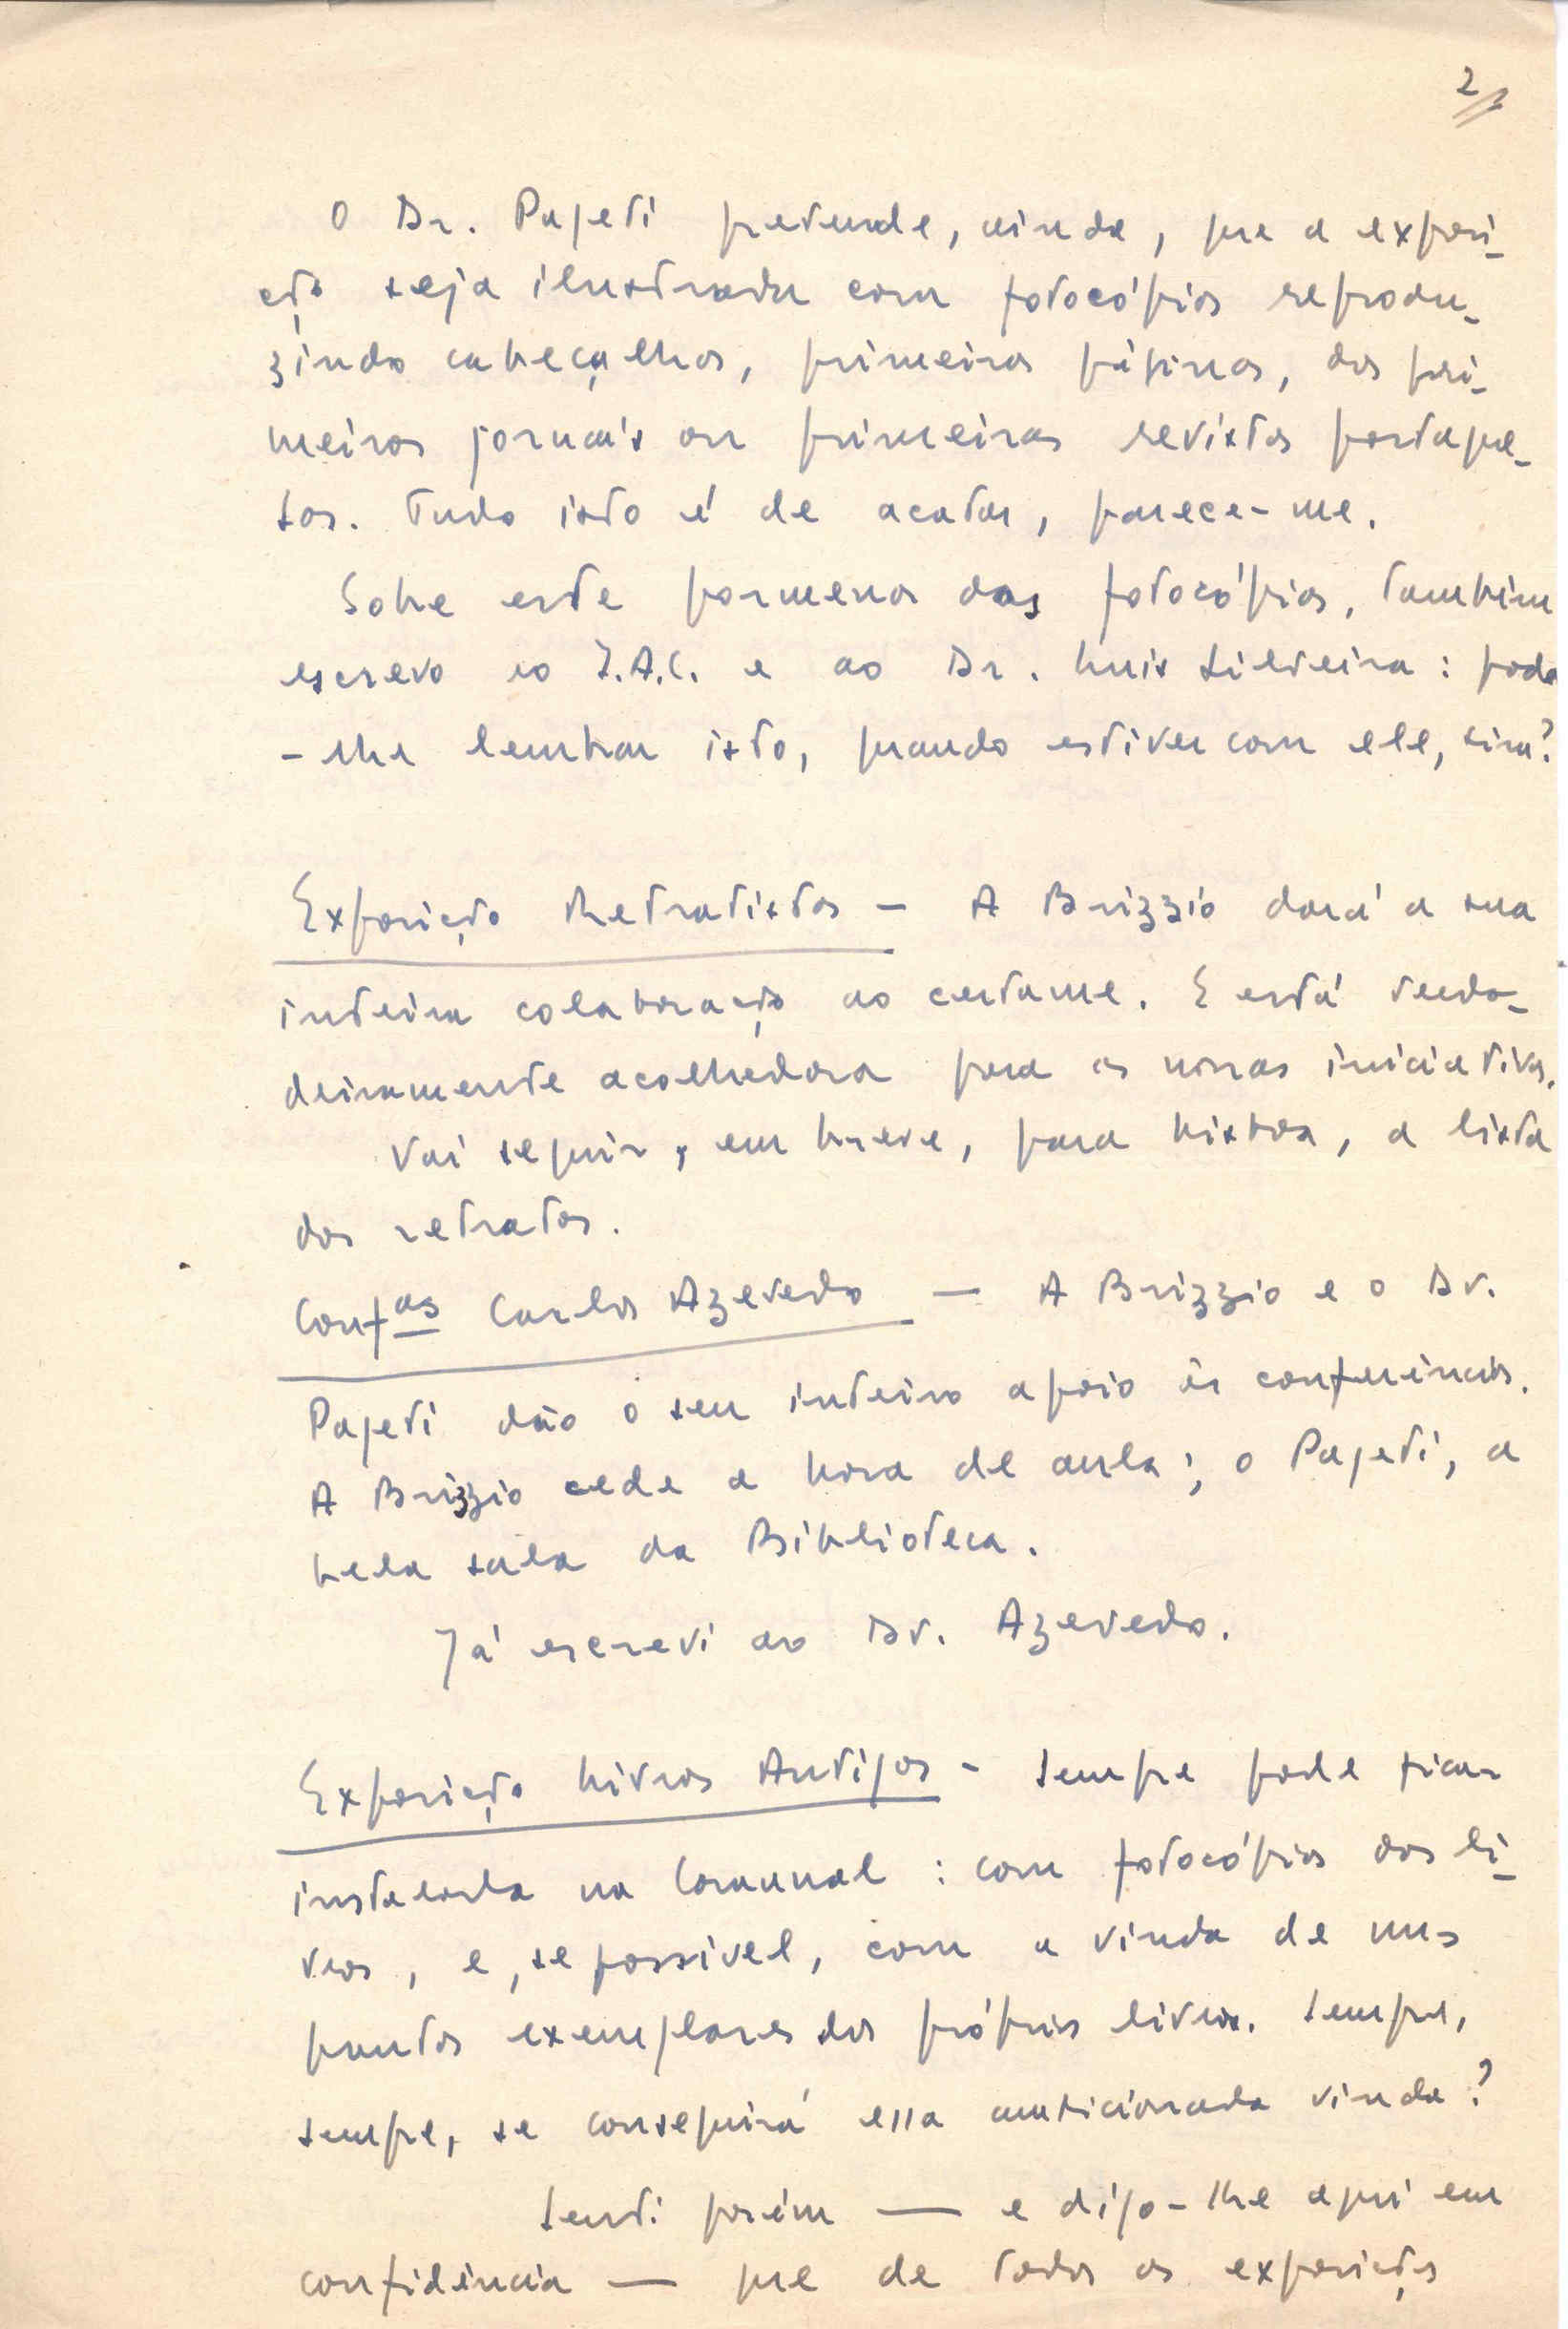 2
O Dr. Pageti pretende, ainda, que a exposi-
ção seja ilustrada com fotocópias reprodu-
zindo cabeçalhos, primeiras páginas, dos pri-
meiros jornais ou primeiras revistas portugue-
sas. Tudo isto é de acatar, parece-me.
Sobre este pormenor das fotocópias, também
escrevo ao I.A.C. e ao Dr. Luis Silveira: pode
-lhe lembrar isto, quando estiver com ele, sim?
Exposição Retratistas — A Brizzio dará a sua
inteira colaboração ao certame. E está verda-
deiramente acolhedora para as nossas iniciativas.
Vai seguir, em breve, para Lisboa, a lista
dos retratos.
Confas Carlos Azevedo — A Brizzio e o Dr.
Pageti dão o seu inteiro apoio às conferências.
A Brizzio cede a hora de aula; o Pageti, a
bela sala da Biblioteca.
Já escrevi ao Dr. Azevedo.
Exposição Livros Antigos - Sempre pode ficar
instalada na Comunal: com fotocópias dos li-
vros, e, se possível, com a vinda de uns
quantos exemplares dos próprios livros. Sempre,
sempre, se conseguirá essa ambicionada vinda?
Senti porém — e digo-lhe aqui em
confidência — que de todas as exposições